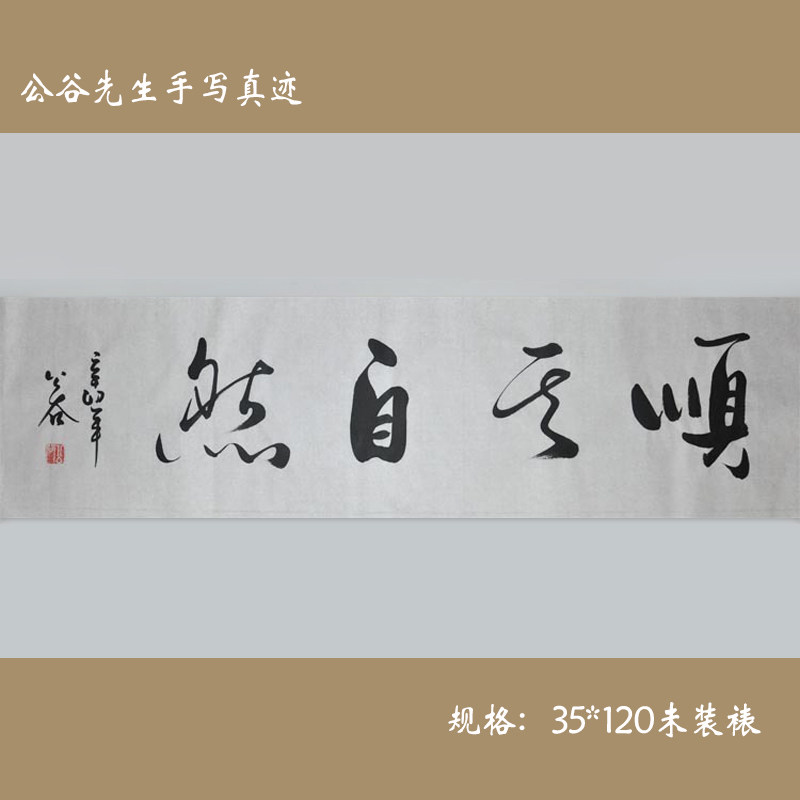 公谷先生手写真迹
順其自然
辛卯年
公谷
规格：35*120未装裱